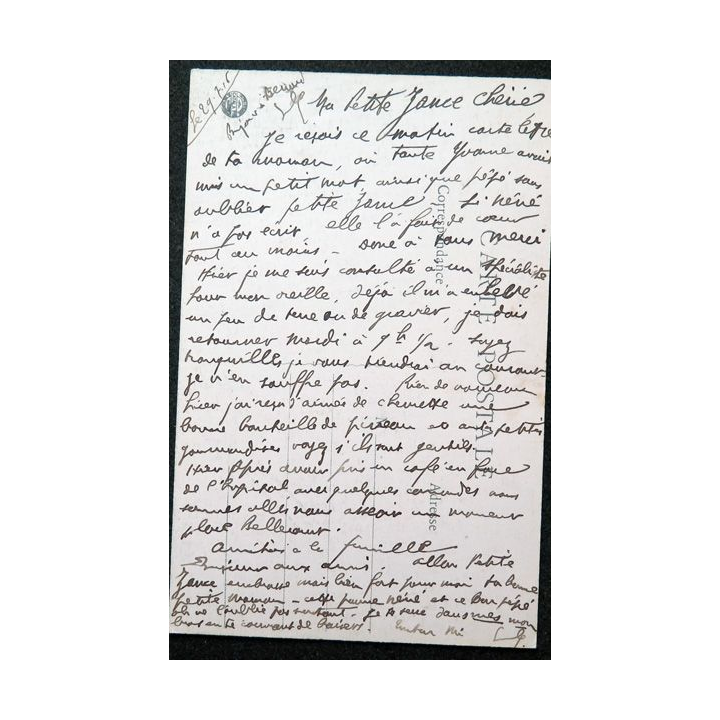 le 29.7.16
Bonjour Bernard
Ma Petite Jance Chérie
Je reçois ce matin carte lettre
de ta maman, où tante Yvonne avait
mis un petit mot, ainsi que pépé sans
oublier petite Jance. Si néné
n'a pas écrit, elle l'a fait de cœur
tout au moins - donc à tous merci
Hier je me suis consulté à un spécialiste
pour mon oreille, déjà il m'a enlevé
un peu de terre ou de gravier, je dois
retourner mardi à 9h 1/2. Soyez
tranquilles je vous tiendrai au courant
je n'en souffre pas. Rien de nouveau
hier j'ai reçu d'aimée de cherette une
bonne bouteille de pineau et petits
gourmandises voyez s'ils sont gentils.
Hier après avoir pris un café en face
de l'Hopital avec quelques camarades nous
sommes allés nous asseoir un moment
place Bellecourt.
Amitiés à la famille
Bonjour aux amis. allons Petite
Jance embrasse mais bien fort pour moi ta bonne
petite maman - cette pauvre néné et ce Bon pépé
ne l'oublie pas surtout - je te serre dans mes mon
bras en te couvrant de baisers.
CARTE POSTALE
Correspondance
Adresse